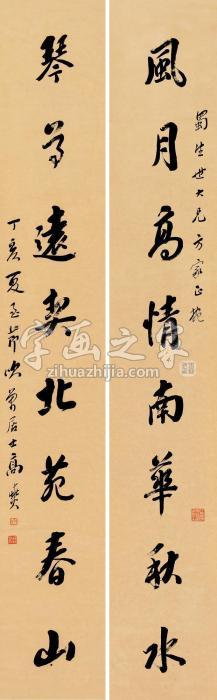 蜀生世大兄方家正
風月高情南華秋水
琴尊遠契北苑春山
丁亥夏至節吹萬居士高燮
字画之家
zihuazhijia.com